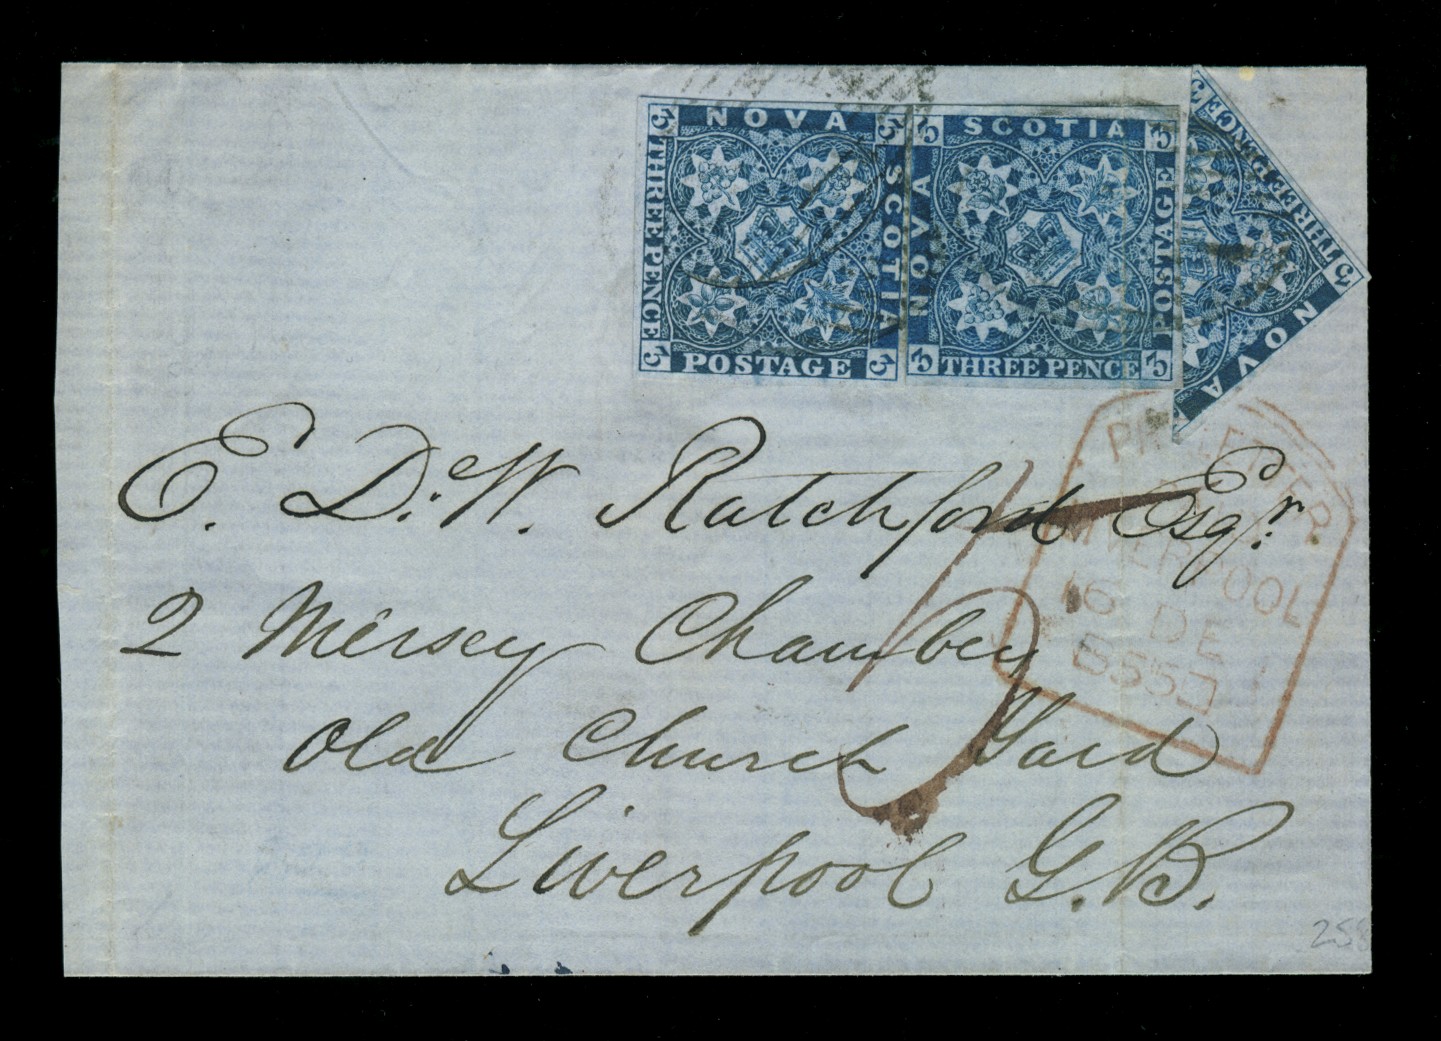 NOVA
SCOTIA
POSTAGE
THREE PENCE
3 3 3 3
SCOTIA
POSTAGE
THREE PENCE
NOVA
3 3 3 3
THREE PENCE
NOVA
3 3
PAID LETTER.
LIVERPOOL
16 DE
E. D. W. Ratchford Esqr.
2 Mersey Chambers
Old Church Yard
Liverpool G.B.